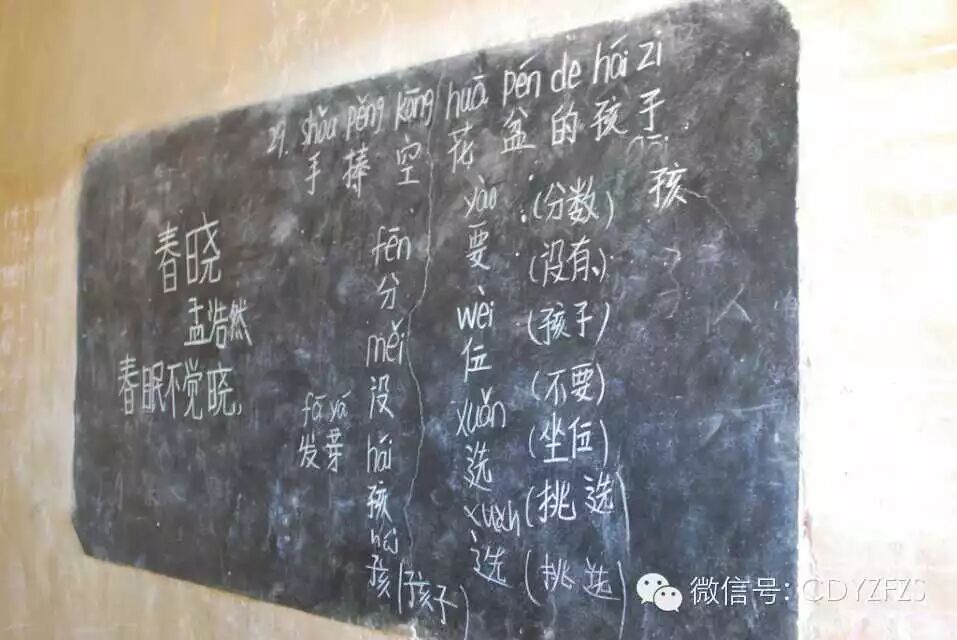 29. shǒu pěng kōng huā pén de hái zi
手 捧 空 花 盆 的 孩 子
春晓
孟浩然
春眠不觉晓,
fā yá
发芽
fēn
分
měi
没
hái
孩
孩(孩子)
yào
要
wèi
位
xuǎn
选
xuǎn
选
(分数)
(没有)
(孩子)
(不要)
(坐位)
(挑选)
(挑选)
孩
微信号: CDYZFZS